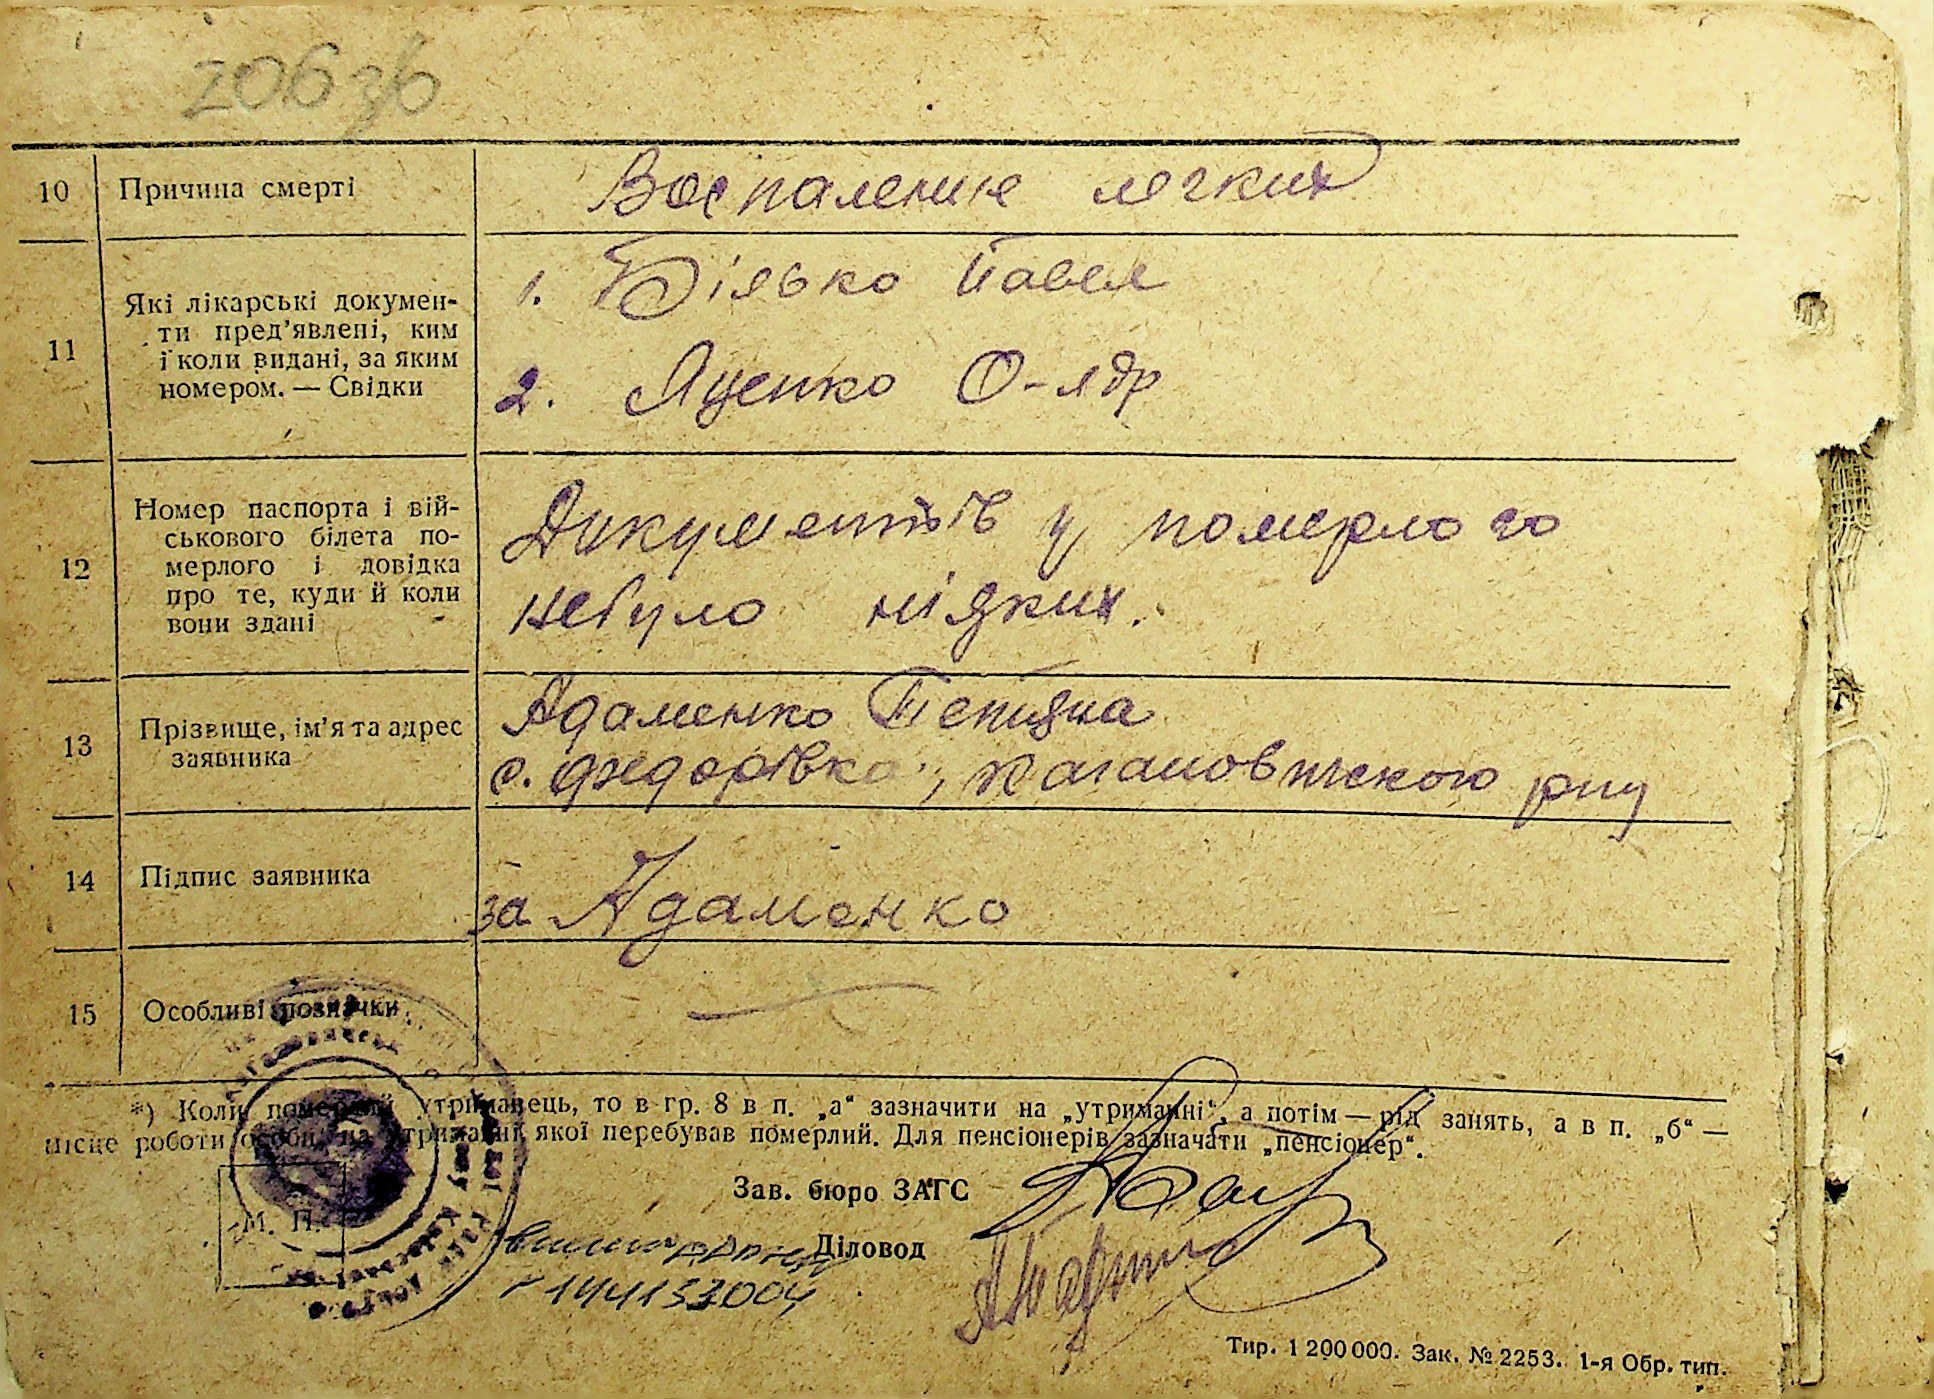 20636
10 Причина смерті Воспаление легких
11 Які лікарські докумен-
ти пред'явлені, ким
і коли видані, за яким
номером. — Свідки
1. Білько Павел
2. Яценко О-ядр
12 Номер паспорта і вій-
ськового білета по-
мерлого і довідка
про те, куди й коли
вони здані
Документів у померлого
небуло ніяких.
13 Прізвище, ім'я та адрес
заявника
Адаменко Тетяна
с. Федорівка, Кагановичского р-ну
14 Підпис заявника за Адаменко
15 Особливі позначки
*) Коли померлий утриманець, то в гр. 8 в п. „а“ зазначити на „утриманні“, а потім — рід занять, а в п. „б“ —
місце роботи особи, на утриманні якої перебував померлий. Для пенсіонерів зазначати „пенсіонер“.
Зав. бюро ЗАГС
М. П.
Діловод
Тир. 1 200 000. Зак. № 2253. 1-я Обр. тип.